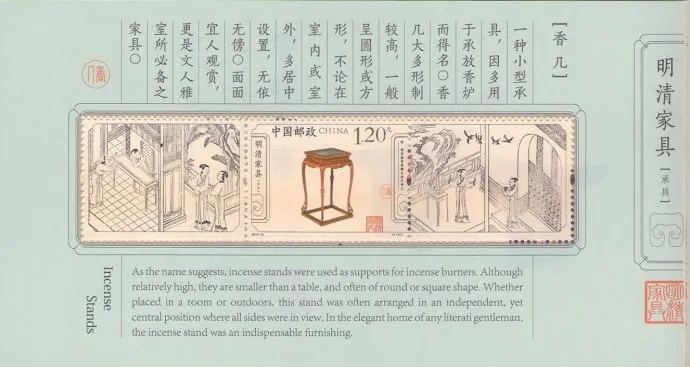 明清家具［承具］
［香几］
一种小型承
具，因多用
于承放香炉
而得名○香
几大多形制
较高，一般
呈圆形或方
形，不论在
室内或室
外，多居中
设置，无依
无傍○面面
宜人观赏，
更是文人雅
室所必备之
家具○
中国邮政 CHINA 1.20元
明清家具
Incense
Stands
As the name suggests, incense stands were used as supports for incense burners. Although
relatively high, they are smaller than a table, and often of round or square shape. Whether
placed in a room or outdoors, this stand was often arranged in an independent, yet
central position where all sides were in view. In the elegant home of any literati gentleman,
the incense stand was an indispensable furnishing.
明清
家具